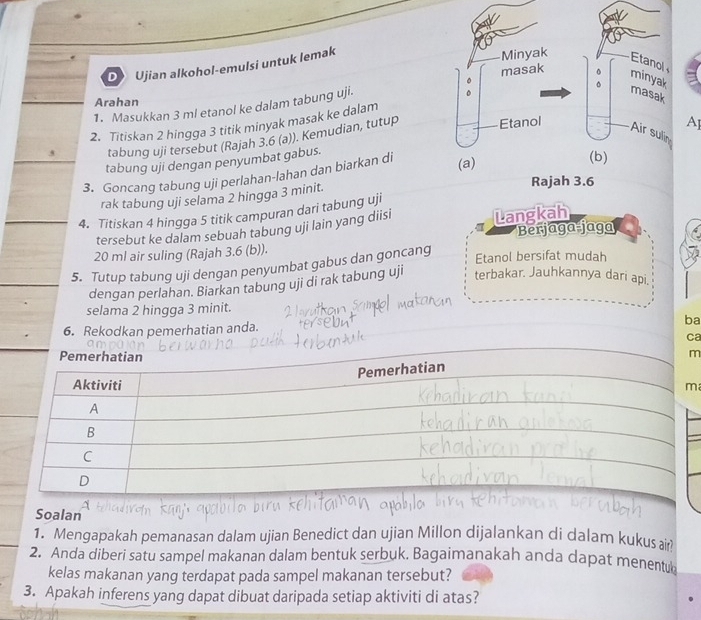 D Ujian alkohol-emulsi untuk lemak
Arahan
1. Masukkan 3 ml etanol ke dalam tabung uji.
2. Titiskan 2 hingga 3 titik minyak masak ke dalam
tabung uji tersebut (Rajah 3.6 (a)). Kemudian, tutup
tabung uji dengan penyumbat gabus.
3. Goncang tabung uji perlahan-lahan dan biarkan di
rak tabung uji selama 2 hingga 3 minit.
4. Titiskan 4 hingga 5 titik campuran dari tabung uji
tersebut ke dalam sebuah tabung uji lain yang diisi
20 ml air suling (Rajah 3.6 (b)).
5. Tutup tabung uji dengan penyumbat gabus dan goncang
dengan perlahan. Biarkan tabung uji di rak tabung uji
selama 2 hingga 3 minit.
6. Rekodkan pemerhatian anda.
Minyak
masak
Etanol
(a)
Etanol,
minyak
masak
Air suling
(b)
Rajah 3.6
Langkah
Berjaga-jaga
Etanol bersifat mudah
terbakar. Jauhkannya dari api.
2 larutkan sampel makanan
tersebut
ampaian berwarna putih terbentuk
Pemerhatian
Aktiviti Pemerhatian
A kehadiran kanji
B kehadiran glukosa
C kehadiran
D kehadiran lemak
A kehadiran kanji apabila biru kehitaman apabila biru kehitaman berubah
Soalan
1. Mengapakah pemanasan dalam ujian Benedict dan ujian Millon dijalankan di dalam kukus air?
2. Anda diberi satu sampel makanan dalam bentuk serbuk. Bagaimanakah anda dapat menentuk
kelas makanan yang terdapat pada sampel makanan tersebut?
3. Apakah inferens yang dapat dibuat daripada setiap aktiviti di atas?
ba
ca
m
ma